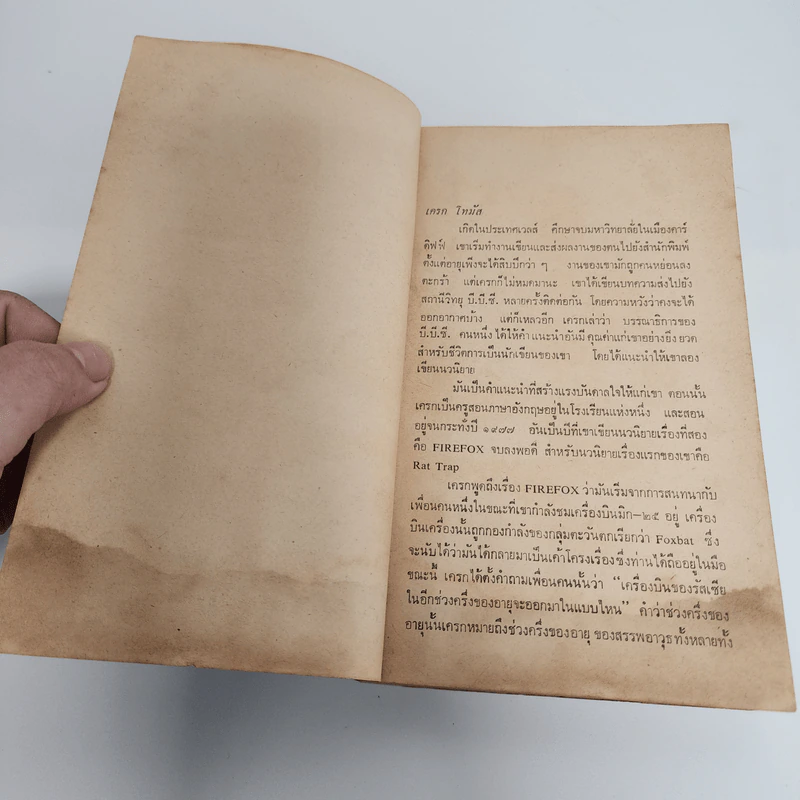 เครก โทมัส
เกิดในประเทศเวลส์ ศึกษาจบมหาวิทยาลัยในเมืองคาร์
ดิฟฟ์ เขาเริ่มทำงานเขียนและส่งผลงานของตนไปยังสำนักพิมพ์
ตั้งแต่อายุเพิ่งจะได้สิบปีกว่า ๆ งานของเขามักถูกคนหย่อนลง
ตะกร้า แต่เครกก็ไม่หมดมานะ เขาได้เขียนบทความส่งไปยัง
สถานีวิทยุ บี.บี.ซี. หลายครั้งติดต่อกัน โดยความหวังว่าคงจะได้
ออกอากาศบ้าง แต่ก็เหลวอีก เครกเล่าว่า บรรณาธิการของ
บี.บี.ซี. คนหนึ่ง ได้ให้คำแนะนำอันมีคุณค่าแก่เขาอย่างยิ่งยวด
สำหรับชีวิตการเป็นนักเขียนของเขา โดยได้แนะนำให้เขาลอง
เขียนนวนิยาย
มันเป็นคำแนะนำที่สร้างแรงบันดาลใจให้แก่เขา ตอนนั้น
เครกเป็นครูสอนภาษาอังกฤษอยู่ในโรงเรียนแห่งหนึ่ง และสอน
อยู่จนกระทั่งปี ๑๙๗๗ อันเป็นปีที่เขาเขียนนวนิยายเรื่องที่สอง
คือ FIREFOX จบลงพอดี สำหรับนวนิยายเรื่องแรกของเขาคือ
Rat Trap
เครกพูดถึงเรื่อง FIREFOX ว่ามันเริ่มจากการสนทนากับ
เพื่อนคนหนึ่งในขณะที่เขากำลังชมเครื่องบินมิก—๒๕ อยู่ เครื่อง
บินเครื่องนั้นถูกกองกำลังของกลุ่มตะวันตกเรียกว่า Foxbat ซึ่ง
จะนับได้ว่ามันได้กลายมาเป็นเค้าโครงเรื่องซึ่งท่านได้ถืออยู่ในมือ
ขณะนี้ เครกได้ตั้งคำถามเพื่อนคนนั้นว่า “เครื่องบินของรัสเซีย
ในอีกช่วงครึ่งของอายุจะออกมาในแบบไหน” คำว่าช่วงครึ่งของ
อายุนั้นเครกหมายถึงช่วงครึ่งของอายุ ของสรรพอาวุธทั้งหลายทั้ง